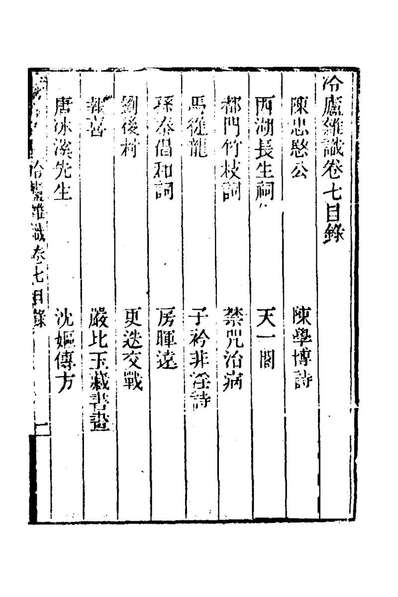 冷廬雜識卷七目錄
陳忠愍公　陳學博詩
西湖長生祠　天一閣
都門竹枝詞　禁咒治病
馬從龍　子衿非淫詩
孫秦倡和詞　房暉遠
劉後村　更迭交戰
報喜　嚴比玉藏書畫
唐冰溪先生　沈嫗傳方
冷廬雜識卷七目錄